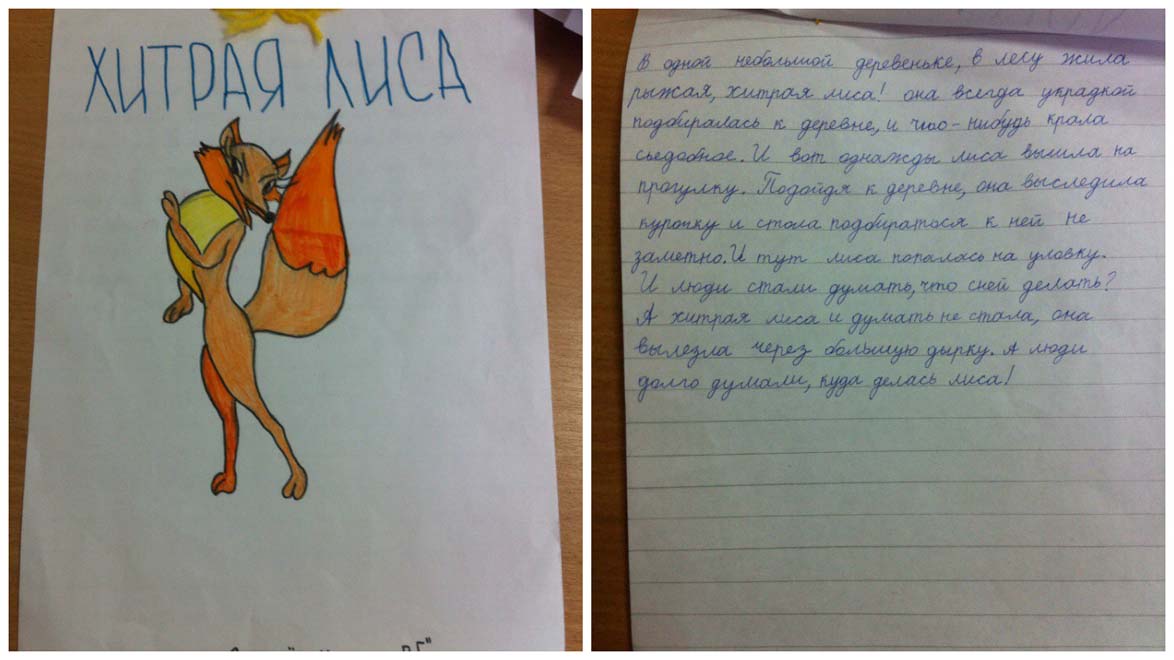 ХИТРАЯ ЛИСА
В одной небольшой деревеньке, в лесу жила
рыжая, хитрая лиса! она всегда украдкой
подобиралась к деревне, и что-нибудь крала
сьедобное. И вот однажды лиса вышла на
прогулку. Подойдя к деревне, она выследила
курочку и стола подобратося к ней не
заметно. И тут лиса попалась на уловку.
И люди стали думать, что сней делать?
А хитрая лиса и думать не стала, она
вылезла через большую дырку. А люди
долго думали, куда делась лиса!